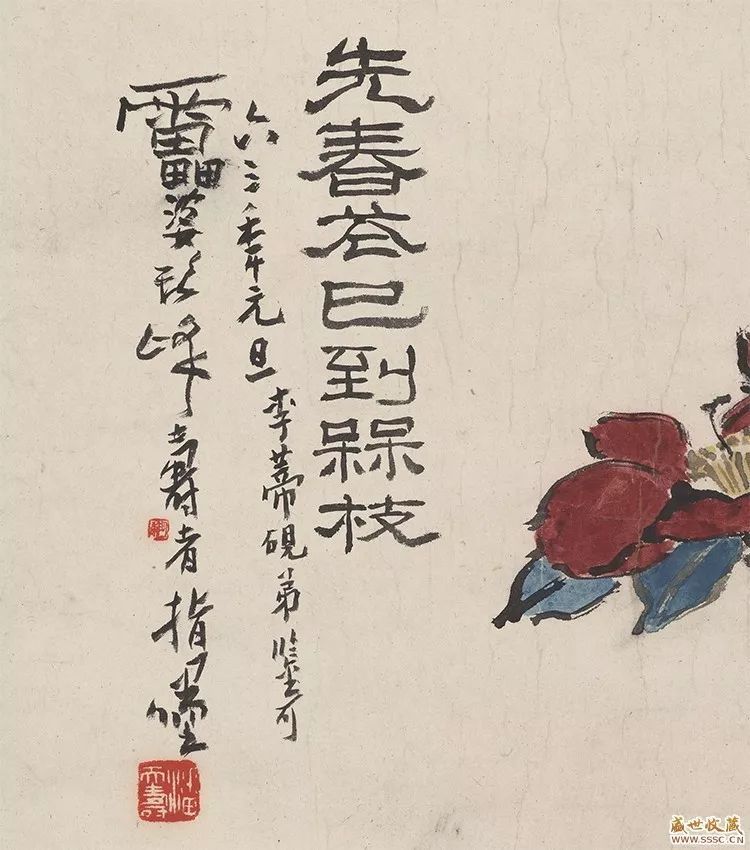 先春花已到槑枝
六三、年元旦 李蒂硯弟鑒可
靁婆頭峰壽者指墨
潘天壽
盛世收藏
WWW.SSSC.CN